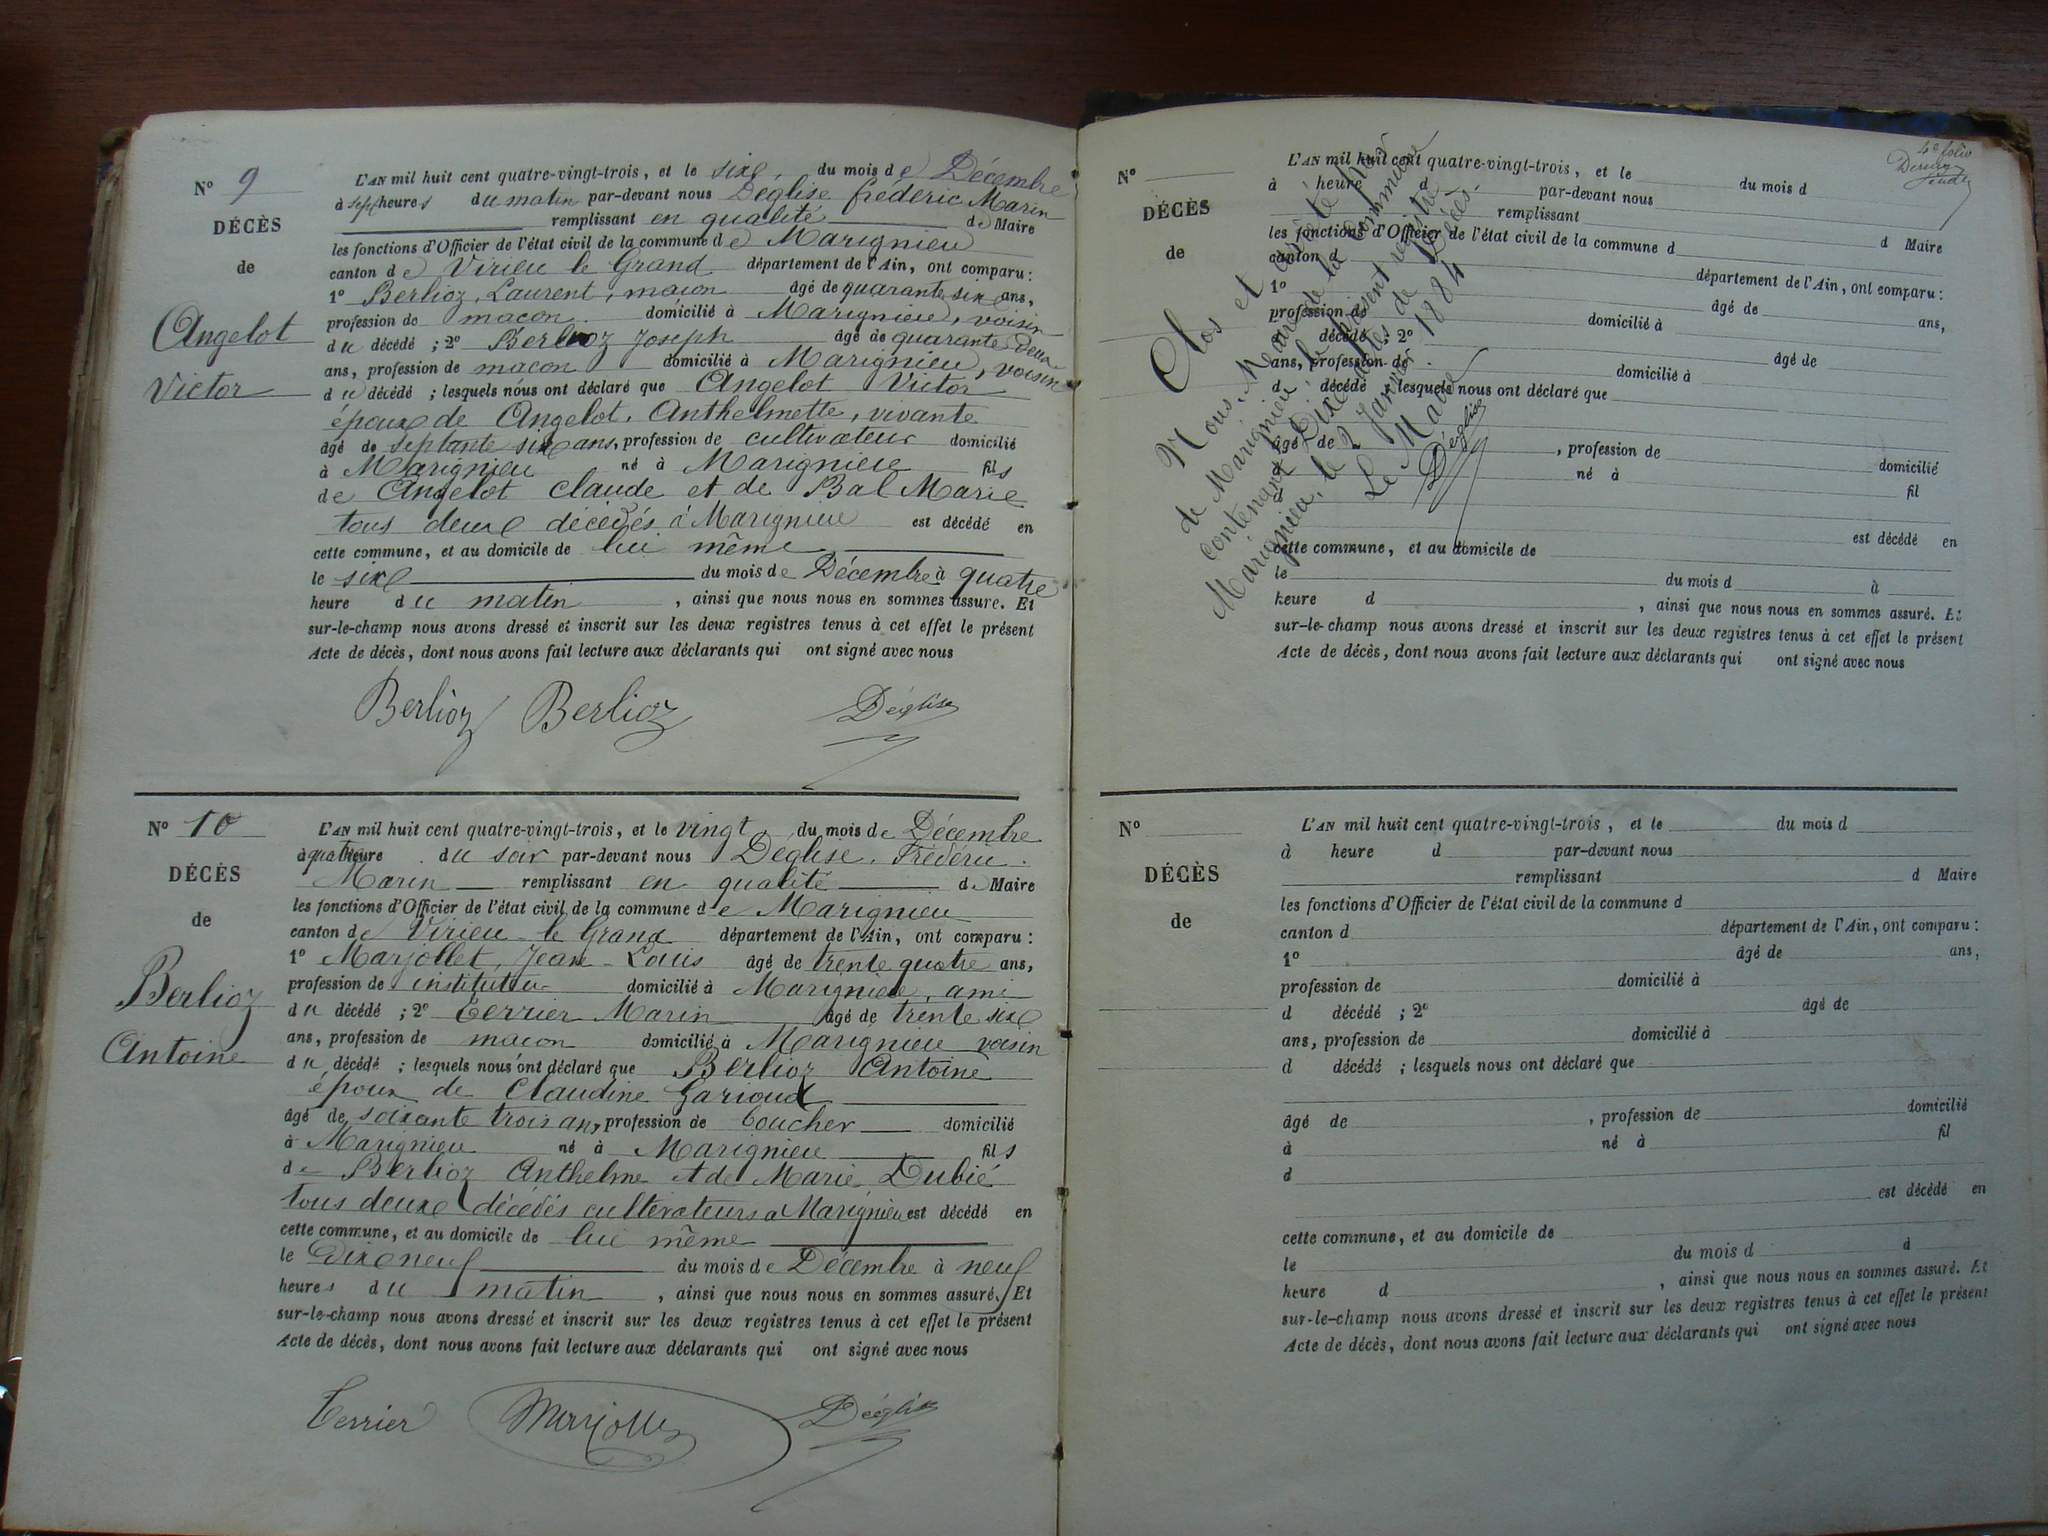 N° 9
DÉCÈS
de
Angelot
Victor
L'AN mil huit cent quatre-vingt-trois, et le six, du mois de Décembre
à sept heures du matin par-devant nous Déglise frédéric Marin
remplissant en qualité de Maire
les fonctions d'Officier de l'état civil de la commune de Marignieu
canton de Virieu le Grand département de l'Ain, ont comparu :
1° Berlioz, Laurent, maçon âgé de quarante six ans,
profession de maçon domicilié à Marignieu, voisin
du décédé ; 2° Berlioz Joseph âgé de quarante deux
ans, profession de maçon domicilié à Marignieu, voisin
du décédé ; lesquels nous ont déclaré que Angelot Victor
époux de Angelot, Anthelmette, vivante
âgé de septante six ans, profession de cultivateur domicilié
à Marignieu né à Marignieu fils
de Angelot Claude et de Bal Marie
tous deux décédés à Marignieu est décédé en
cette commune, et au domicile de lui même
le six du mois de Décembre à quatre
heure du matin, ainsi que nous nous en sommes assuré. Et
sur-le-champ nous avons dressé et inscrit sur les deux registres tenus à cet effet le présent
Acte de décès, dont nous avons fait lecture aux déclarants qui ont signé avec nous
Berlioz Berlioz Déglise
N° 10
DÉCÈS
de
Berlioz
Antoine
L'AN mil huit cent quatre-vingt-trois, et le vingt, du mois de Décembre
à quatre heure du soir par-devant nous Déglise, Frédéric
Marin remplissant en qualité de Maire
les fonctions d'Officier de l'état civil de la commune de Marignieu
canton de Virieu le Grand département de l'Ain, ont comparu :
1° Marjollet, Jean-Louis âgé de trente quatre ans,
profession de instituteur domicilié à Marignieu, ami
du décédé ; 2° Terrier Marin âgé de trente six
ans, profession de maçon domicilié à Marignieu voisin
du décédé ; lesquels nous ont déclaré que Berlioz Antoine
époux de Claudine Garioud
âgé de soixante trois ans, profession de boucher domicilié
à Marignieu né à Marignieu fils
de Berlioz Anthelme et de Marie Dubié
tous deux décédés cultivateurs à Marignieu est décédé en
cette commune, et au domicile de lui même
le dix neuf du mois de Décembre à neuf
heures du matin, ainsi que nous nous en sommes assuré. Et
sur-le-champ nous avons dressé et inscrit sur les deux registres tenus à cet effet le présent
Acte de décès, dont nous avons fait lecture aux déclarants qui ont signé avec nous
Terrier Marjollet Déglise
4e folio
N°
DÉCÈS
de
L'AN mil huit cent quatre-vingt-trois, et le du mois d
à heure d par-devant nous
remplissant d Maire
les fonctions d'Officier de l'état civil de la commune d
canton d département de l'Ain, ont comparu :
1° âgé de ans,
profession de domicilié à
d décédé ; 2° âgé de
ans, profession de domicilié à
d décédé ; lesquels nous ont déclaré que
âgé de , profession de domicilié
à né à fil
d
est décédé en
cette commune, et au domicile de
le du mois d à
heure d , ainsi que nous nous en sommes assuré. Et
sur-le-champ nous avons dressé et inscrit sur les deux registres tenus à cet effet le présent
Acte de décès, dont nous avons fait lecture aux déclarants qui ont signé avec nous
Clos et arrêté par
Nous, Maire de la Commune
de Marignieu, le présent registre
contenant Dix actes de Décès
Marignieu, le 2 Janvier 1884
Le Maire
Déglise
N°
DÉCÈS
de
L'AN mil huit cent quatre-vingt-trois, et le du mois d
à heure d par-devant nous
remplissant d Maire
les fonctions d'Officier de l'état civil de la commune d
canton d département de l'Ain, ont comparu :
1° âgé de ans,
profession de domicilié à
d décédé ; 2° âgé de
ans, profession de domicilié à
d décédé ; lesquels nous ont déclaré que
âgé de , profession de domicilié
à né à fil
d
est décédé en
cette commune, et au domicile de
le du mois d à
heure d , ainsi que nous nous en sommes assuré. Et
sur-le-champ nous avons dressé et inscrit sur les deux registres tenus à cet effet le présent
Acte de décès, dont nous avons fait lecture aux déclarants qui ont signé avec nous